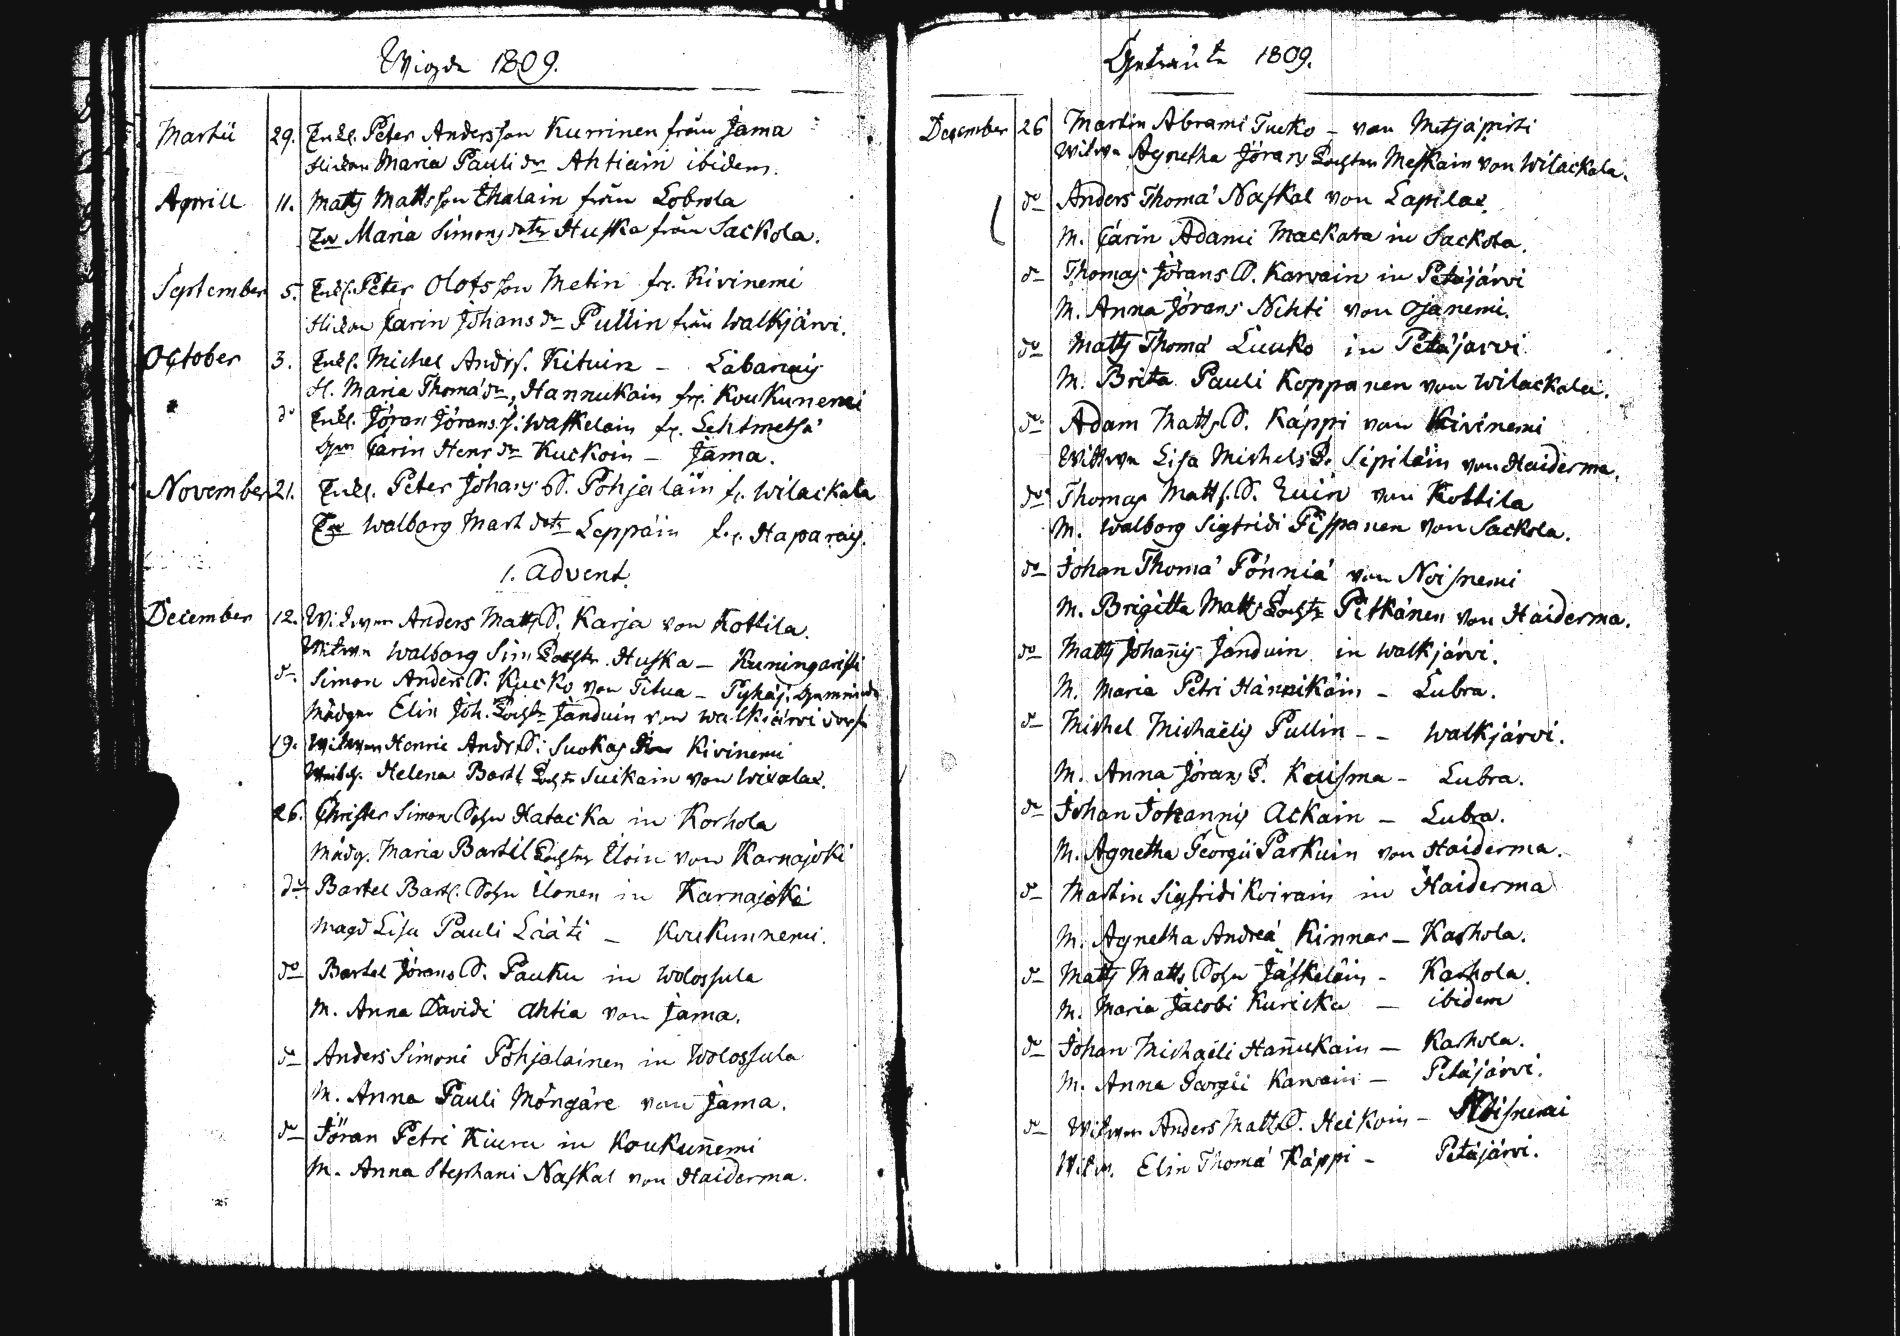 Wigda 1809.
Martii 29. Enkl. Peter Andersson Kurrinen från Jama
Flickan Maria Pauli dr Ahtiain ibidem.
Aprill 11. Matts Matsson Ihalain från
Ea Maria Simons dotr Huska från Sackola.
September 5. Enkl. Peter Olofsson Metin fr. Kivinemi
Flickan Carin Johans dr Pullin från Walkjärvi.
October 3. Enkl. Michel Andrs. Kituin –
Fl. Maria Thomä dr, Hannukain fr. Koukunemi
do Enkl. Jöran Jörans.s. Waskelain fr. Lehtmetsä
Carin Henr dr Kuckoin – Jama.
November 21. Enkl. Peter Johans S. Pohjalain fr. Wilackala
Walborg Mart dotr Leppäin fr. Haparais.
1. Advent.
December 12. Witwer Anders Matts S. Karja von Kottila.
Witwe Walborg Sim Tochter Huska – Kuningaristi
do Simon Anders S. Kucko von – Pyhäj.
Mädgn Elin Joh. Tocht. Janduin von Walkiärvi dorf
19. Witwer Henric Andrs S. Suokas Kivinemi
Helena Bartl Tocht Suikain von
26. Christer Simon Sohn Hatacka in Korhola
Mädg. Maria Bartil Tochter Iloin von Karnajoki
do Bartel Bartl. Sohn Ilonen in Karnajoki
Magd Lisa Pauli Lääti – Koukunnemi.
do Bartel Jörans S. Pauku in Wolossula
M. Anna Davidi Ahtia von Jama.
do Anders Simoni Pohjalainen in Wolossula
M. Anna Pauli Möngäre von Jama.
do Jöran Petri Kiuru in Koukun̄emi
M. Anna Stephani Naskal von Haiderma.
Getraute 1809.
December 26 Martin Abrami Tucko – von Metsäpirti
Witwe Agnetha Jörans Tochter Meskain von Wilackala.
do Anders Thomä Naskal von Lapilax.
M. Carin Adami Mackara in Sackola.
do Thomas Jörans S. Karvain in Petäjärvi
M. Anna Jörans Nihti von Ojanemi.
do Matts Thomä Luuko in Petäjärvi
M. Brita Pauli Koppanen von Wilackala.
do Adam Matts S. Käppi von Kivinemi
Wittwe Lisa Michels T. Sipiläin von Haiderma.
do Thomas Matts. S. von Kottila
M. Walborg Sigfridi Pispanen von Sackola.
do Johan Thomä Pönniä von Noisnemi
M. Brigitta Matts Tochtr Pitkänen von Haiderma.
do Matts Johan̄is Janduin in Walkjärvi.
M. Maria Petri Hännikäin – Lubra.
do Michel Michaëlis Pullin – – Walkjärvi.
M. Anna Jörans T. Kouisma – Lubra.
do Johan Johannis Ackain – Lubra.
M. Agnetha Georgii Parkuin von Haiderma.
do Martin Sigfridi Koirain in Haiderma
M. Agnetha Andreä Kinnar – Karhola.
do Matts Matts Sohn Jäskeläin – Karhola.
M. Maria Jacobi Kuricka – ibidem
do Johan Michaëli Han̄ukain – Karhola.
M. Anna Georgii Karvain – Petäjärvi.
do Witwer Anders Matts S. Heikoin – Noisnemi
Witw. Elin Thomä Käppi – Petäjärvi.